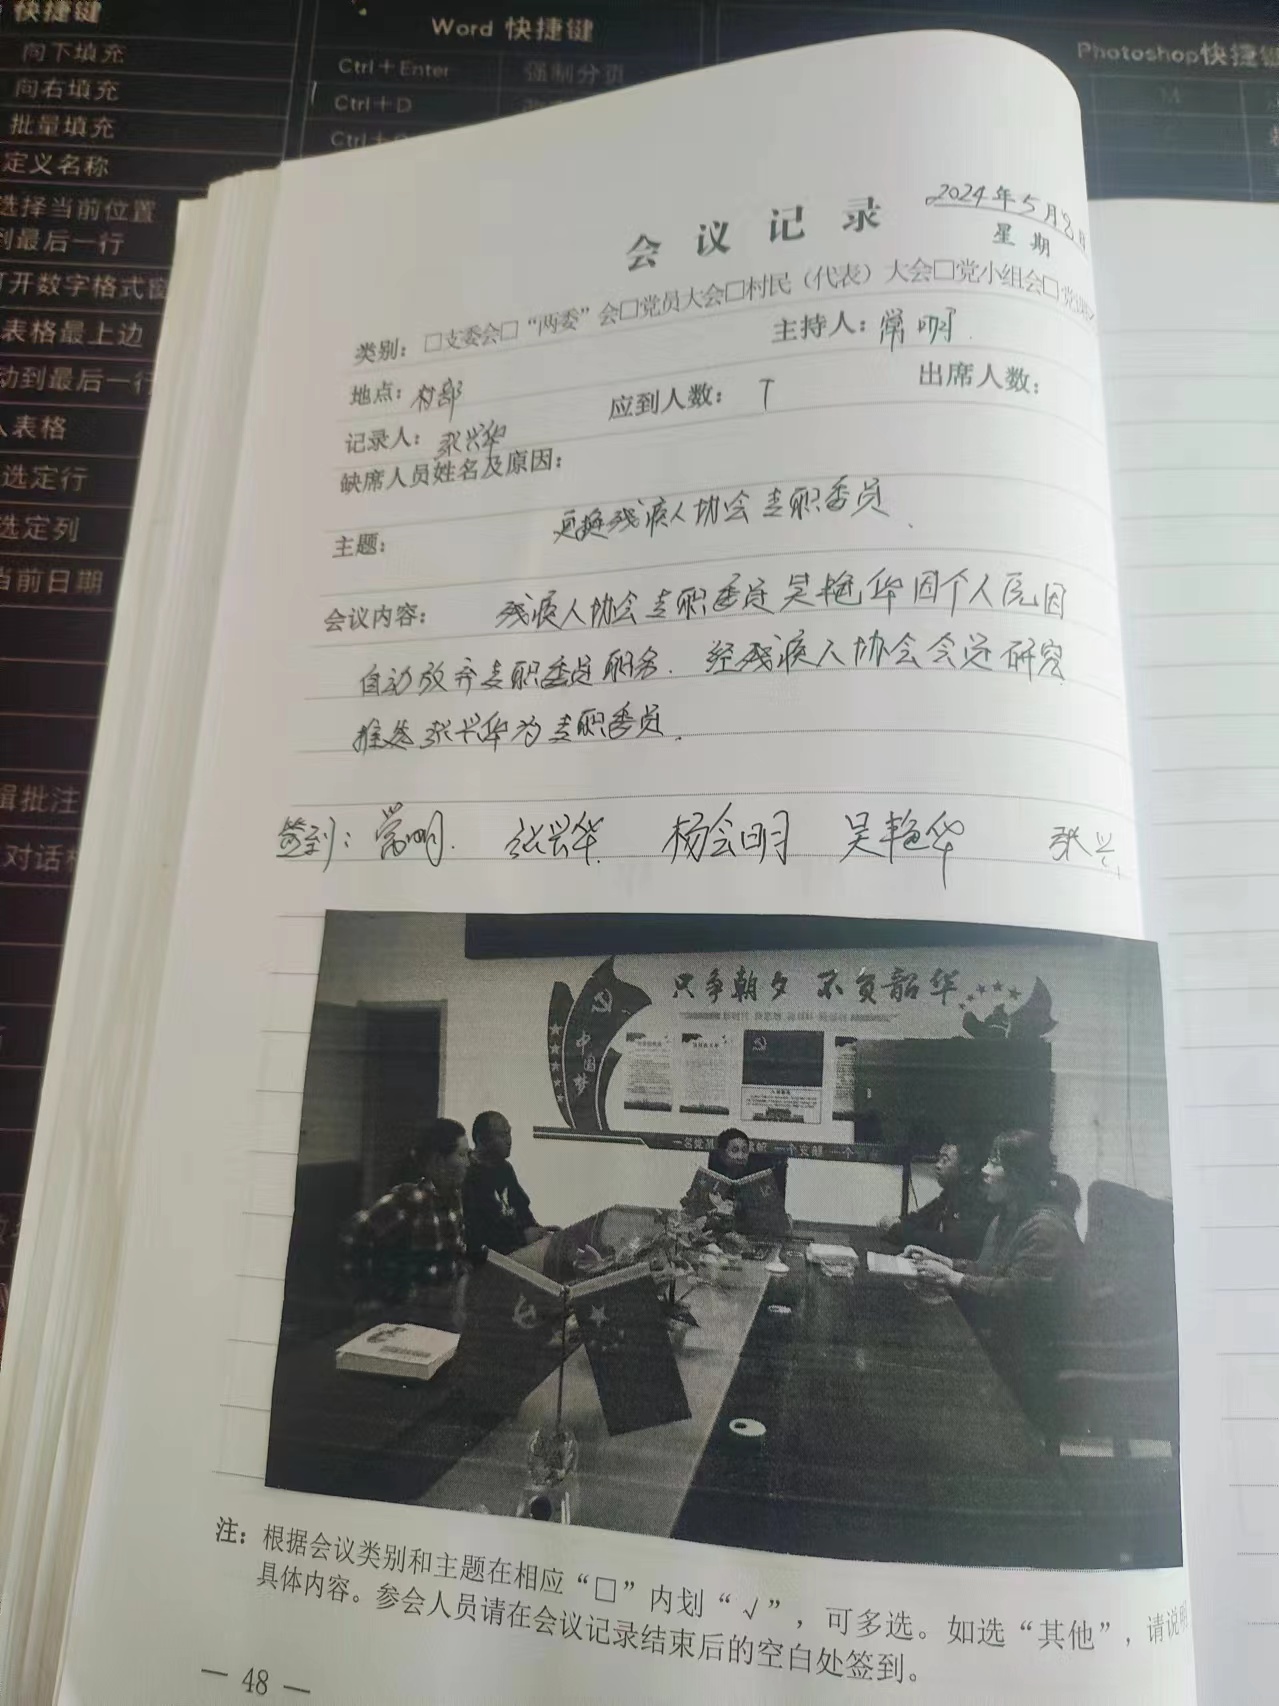 快捷键
向下填充
向右填充
批量填充
定义名称
选择当前位置
到最后一行
打开数字格式
表格最上边
动到最后一行
表格
选定行
选定列
当前日期
辑批注
对话
Word 快捷键
Ctrl+Enter 强制分页
Ctrl+D
Photoshop快捷键
M
2024年5月8日
会议记录
星期
类别：□支委会□“两委”会□党员大会□村民（代表）大会□党小组会□党
地点：村部 主持人：常明
记录人：张兴华 应到人数： 出席人数：
缺席人员姓名及原因：
主题： 更换残疾人协会专职委员
会议内容： 残疾人协会专职委员吴艳华因个人原因
自动放弃专职委员职务. 经残疾人协会会员研究
推选张兴华为专职委员.
签到：常明. 张兴华. 杨会明 吴艳华 张兴
只争朝夕 不负韶华
中国梦
注：根据会议类别和主题在相应“□”内划“√”，可多选。如选“其他”，请说明
具体内容。参会人员请在会议记录结束后的空白处签到。
— 48 —